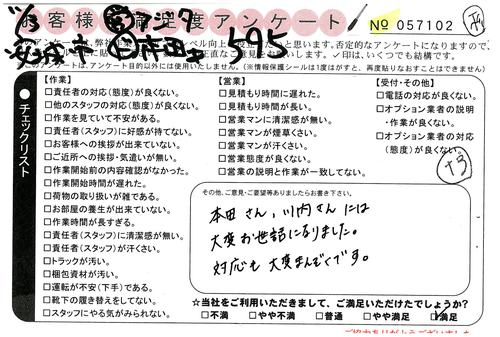 お客様満足度アンケート
No 057102
のアンケートは、
否定的なアンケートになりますので、
✓印は、いくつでも結構です。
このアンケートは、アンケート目的以外には使用いたしません。(※情報保護シールは1度はがすと、再度貼りなおすことはできません)
チェックリスト
【作業】
□責任者の対応(態度)が良くない。
□他のスタッフの対応(態度)が良くない。
□作業を見ていて不安がある。
□責任者(スタッフ)に好感が持てない。
□お客様への挨拶が出来ていない。
□ご近所への挨拶・気遣いが無い。
□作業開始前の内容確認がなかった。
□作業開始時間が遅れた。
□荷物の取り扱いが雑である。
□お部屋の養生が出来ていない。
□作業時間が長すぎる。
□責任者(スタッフ)に清潔感が無い。
□責任者(スタッフ)が汗くさい。
□トラックが汚い。
□梱包資材が汚い。
□運転が不安(下手)である。
□靴下の履き替えをしてない。
□スタッフにやる気がみられない。
【営業】
□見積もり時間に遅れた。
□見積もり時間が長い。
□営業マンに清潔感が無い。
□営業マンが煙草くさい。
□営業マンが汗くさい。
□営業態度が良くない。
□営業の説明と作業が一致してない。
【受付・その他】
□電話の対応が良くない。
□オプション業者の説明
・作業が良くない。
□オプション業者の対応
(態度)が良くない。
その他、ご意見・ご要望等ありましたらお書き下さい。
本田さん,川内さんには
大変お世話になりました。
対応も大変まんぞくです。
☆当社をご利用いただきまして、ご満足いただけたでしょうか?
□不満 □やや不満 □普通 □やや満足 ☑満足
ご協力ありがとうございました